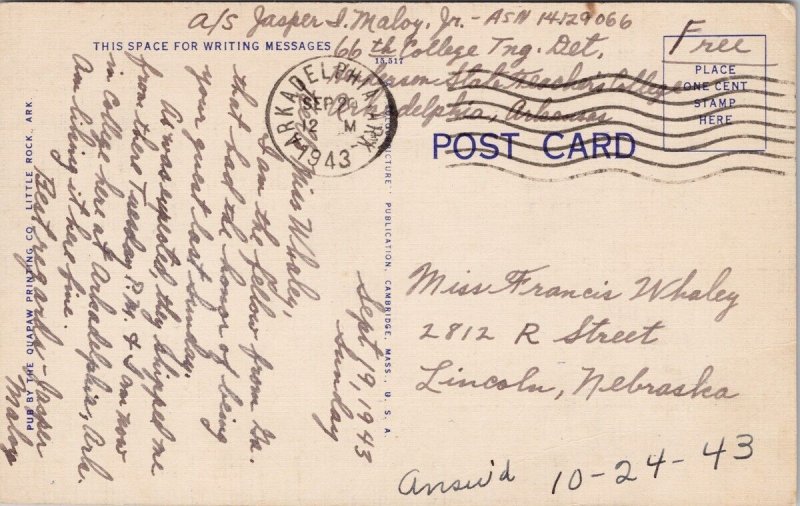 A/S Jasper I. Maloy, Jr. - ASN 14129066
66th College Tng. Det,
State Teacher's College
Arkadelphia, Arkansas
Free
THIS SPACE FOR WRITING MESSAGES
15,517
PLACE
ONE CENT
STAMP
HERE
POST CARD
ARKADELPHIA, ARK.
SEP 20
12 M
1943
Sept 19, 1943
Sunday
Miss Whaley,
I am the fellow from Ga.
that had the honor of being
your guest last Sunday.
As was expected, they shipped me
from there Tuesday P.M. & I'm now
in College here at Arkadelphia, Ark.
Am liking it here fine.
Best regards - Jasper
Maloy
Miss Francis Whaley
2812 R Street
Lincoln, Nebraska
Answ'd 10-24-43
PUB BY THE QUAPAW PRINTING CO. LITTLE ROCK, ARK.
PUBLICATION, CAMBRIDGE, MASS., U. S. A.